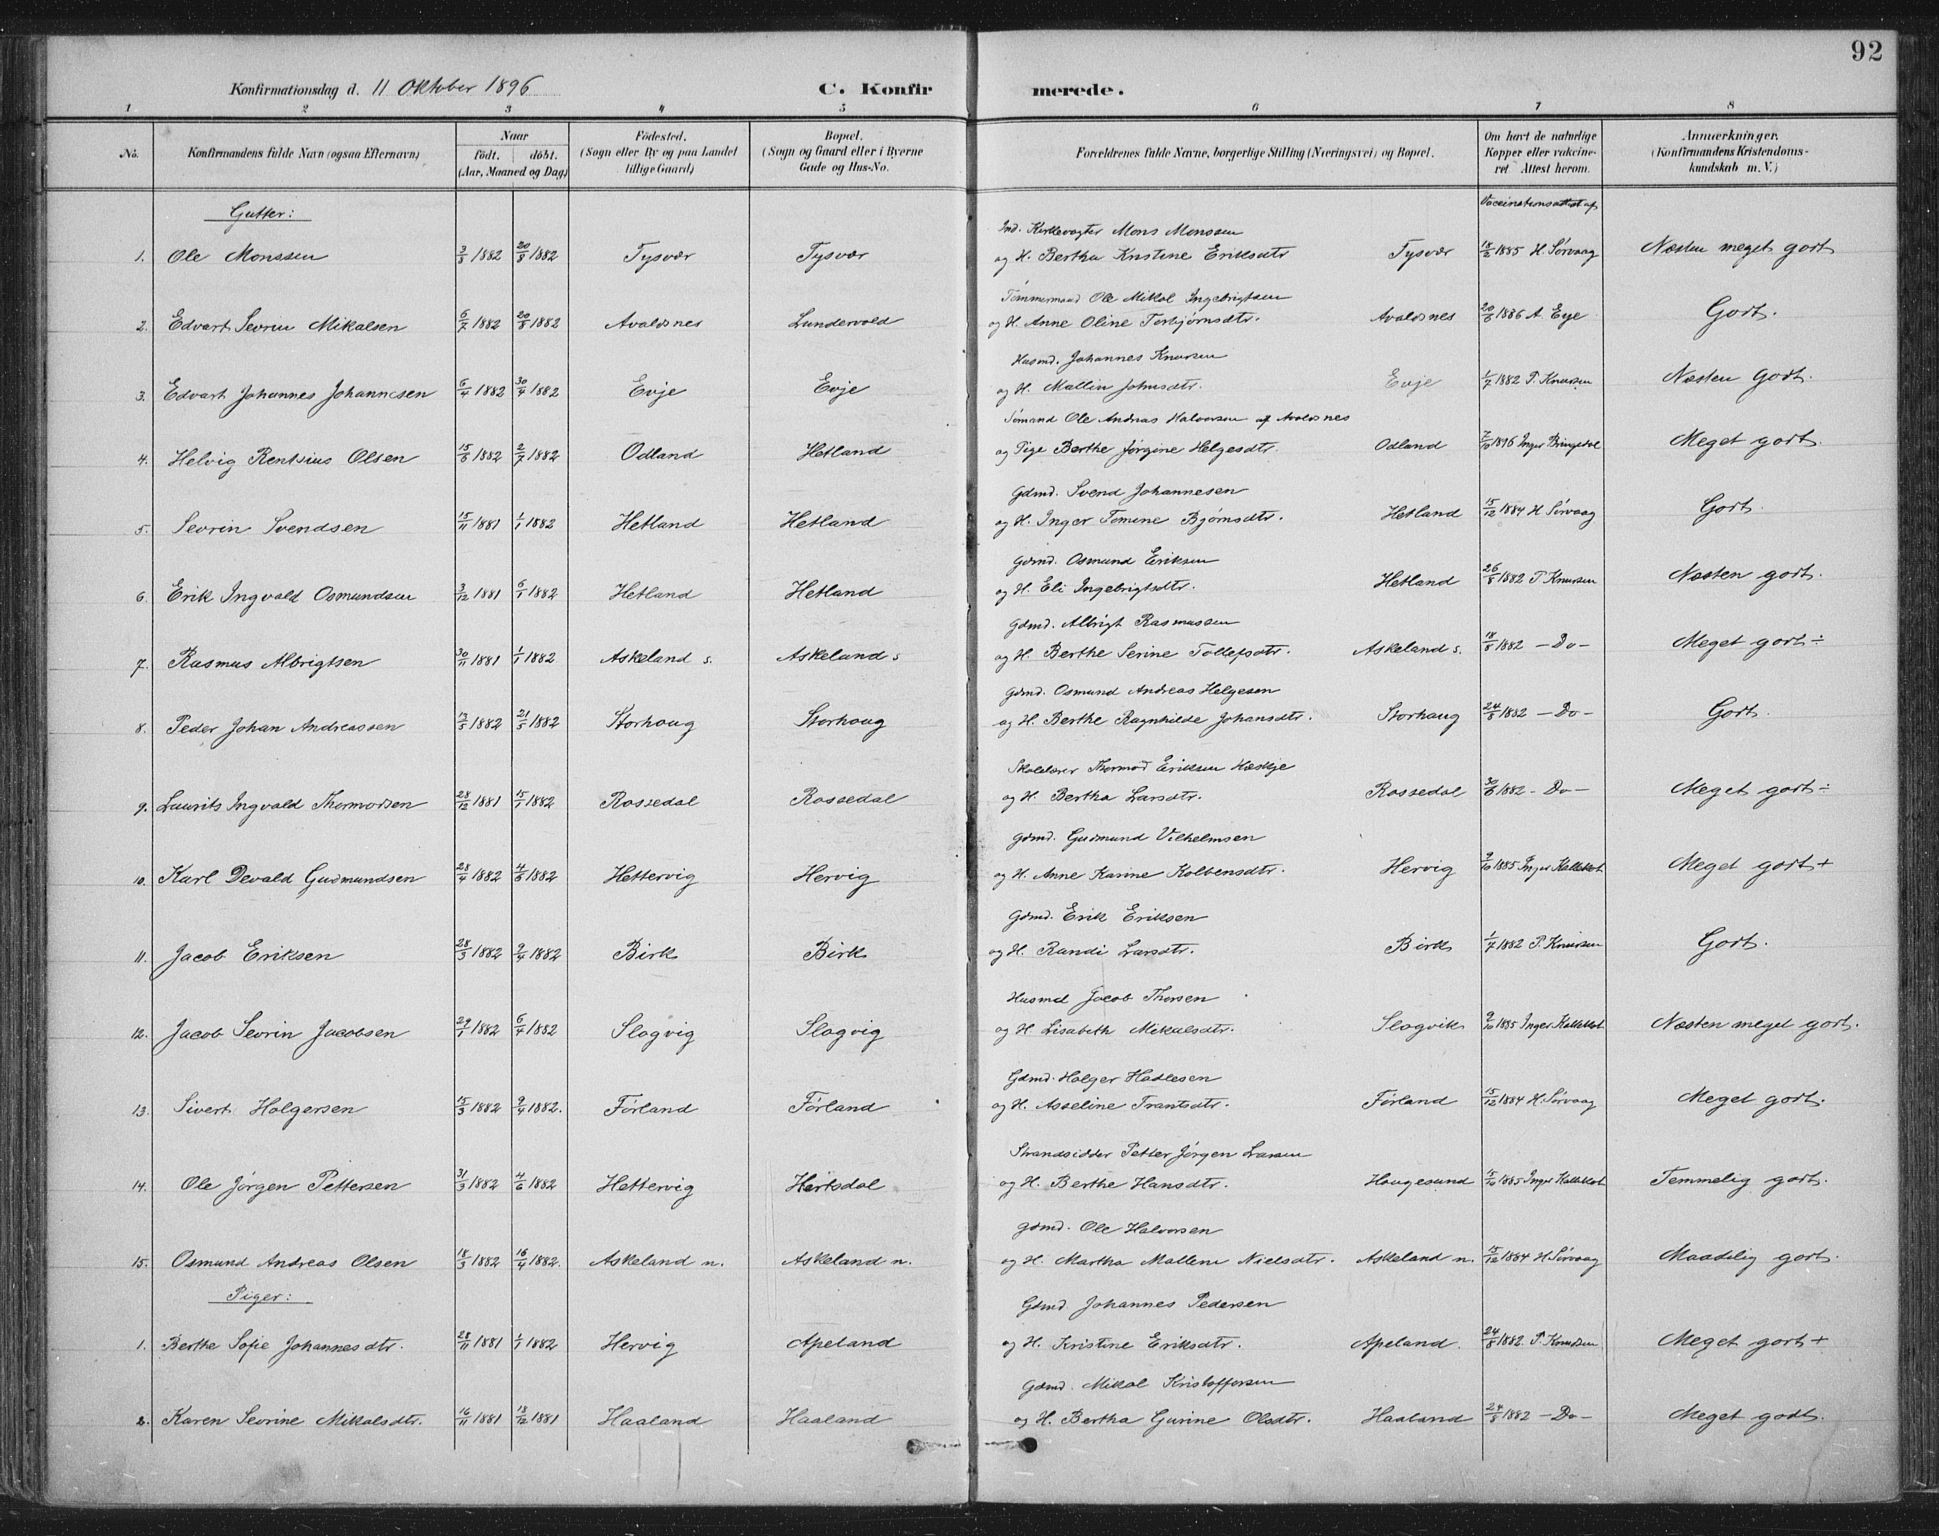 92
Konfirmationsdag d. 11 Oktober 1896 C. Konfirmerede.
1 2 3 4 5 6 7 8
No. Konfirmandens fulde Navn (ogsaa Efternavn) Naar født. døbt. (Aar, Maaned og Dag) Fødested. (Sogn eller By og paa Landet tillige Gaard) Bopæl. (Sogn og Gaard eller i Byerne Gade og Hus-No. Forældrenes fulde Navne, borgerlige Stilling (Næringsvei) og Bopæl. Om havt de naturlige Kopper eller vakcineret. Attest herom. Anmærkninger. (Konfirmandens Kristendomskundskab m. V.)
Gutter: Vaccinationsattest af
Ind. Kirkevagter Mons Monssen
1. Ole Monssen 3/8 1882 20/8 1882 Tysvær Tysvær og H. Bertha Kristine Eriksdtr Tysvær 18/2 1885 H. Sørvaag Næsten meget godt
Tømmermand Ole Mikal Ingebrigtsen
2. Edvart Sevrin Mikalsen 6/7 1882 20/8 1882 Avaldsnes Lundervold og H. Anne Oline Torbjørnsdtr. Avaldsnes 20/6 1886 A. Eye Godt.
Husmd. Johannes Knudsen
3. Edvart Johannes Johannesen 6/4 1882 30/4 1882 Evje Evje og H. Mallin Johnsdtr. Evje 1/7 1882 P. Knudsen Næsten Godt.
Sømand Ole Andreas Halvorsen af Avaldsnes
4. Helvig Rentsius Olsen 15/6 1882 2/7 1882 Odland Hetland og Pige Berthe Jørgine Helgesdtr. Odland 7/10 1896 Inger Bringedal Meget godt.
Gdmd. Svend Johannesen
5. Sevrin Svendsen 15/11 1881 1/1 1882 Hetland Hetland og H. Inger Tomine Bjørnsdtr. Hetland 15/12 1884 H Sørvaag Godt.
Gdmd. Osmund Eriksen
6. Erik Ingvald Osmundsen 3/12 1881 6/1 1882 Hetland Hetland og H. Eli Ingebrigtsdtr. Hetland 26/8 1882 P. Knudsen Næsten godt.
Gdmd. Albrigt Rasmussen
7. Rasmus Albrigtsen 30/11 1881 1/1 1882 Askeland s. Askeland s og H. Berthe Serine Tollefsdtr. Askeland s. 18/8 1882 — Do — Meget godt ÷
Gdmd. Osmund Andreas Helgesen
8. Peder Johan Andreassen 13/5 1882 21/5 1882 Storhaug Storhaug og H. Berthe Ragnhilde Johansdtr. Storhaug 24/8 1882 — Do — Godt.
Skolelærer Thormod Eriksen Hæskje
9. Laurits Ingvald Thormodsen 28/12 1881 15/1 1882 Rossedal Rossedal og H. Bertha Larsdtr. Rossedal 30/6 1882 — Do — Meget godt ÷
Gdmd. Gudmund Vilhelmsen
10. Karl Devald Gudmundsen 28/4 1882 4/6 1882 Hettervig Hervig og H. Anne Karine Kolbensdtr. Hervig 9/10 1885 Inger Kallekot Meget godt +
Gdmd. Erik Eriksen
11. Jacob Eriksen 28/3 1882 9/4 1882 Birk Birk og H. Randi Larsdtr. Birk 1/7 1882 P. Knudsen Godt.
Husmd Jacob Thorsen
12. Jacob Sevrin Jacobsen 29/1 1882 6/4 1882 Slogvig Slogvig og H. Lisabeth Mikalsdtr. Slogvik 9/10 1885 Inger Kallekot Næsten meget godt.
Gdmd. Holger Hadlesen
13. Sivert Holgersen 15/3 1882 9/4 1882. Førland Førland og H. Asseline Trantsdtr. Førland 15/12 1884 H. Sørvaag Meget godt.
Strandsidder Petter Jørgen Larsen
14. Ole Jørgen Pettersen 31/3 1882 4/6 1882 Hettervig Hertsdal og H. Berthe Hansdtr. Haugesund 15/10 1885 Inger Kallekot Temmelig godt.
Gdmd. Ole Halvorsen
15. Osmund Andreas Olsen 18/3 1882 16/4 1882. Askeland n. Askeland n. og H. Martha Mallene Nielsdtr. Askeland n. 15/12 1884 H Sørvaag Maadelig godt.
Piger:
Gdmd Johannes Pedersen
1. Berthe Sofie Johannesdtr. 28/11 1881 1/1 1882 Hervig Apeland og H. Kristine Eriksdtr. Apeland. 24/8 1882 P. Knudsen Meget godt +
Gdmd. Mikal Kristoffersen
2. Karen Sevrine Mikalsdtr. 16/11 1881 18/12 1881 Haaland Haaland og H. Bertha Gurine Olsdtr. Haaland 24/8 1882 — Do — Meget godt.